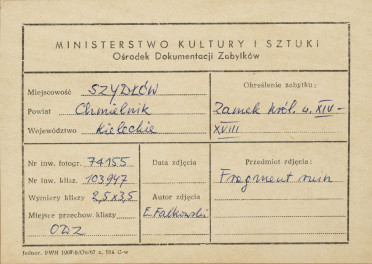 MINISTERSTWO KULTURY I SZTUKI
Ośrodek Dokumentacji Zabytków
Miejscowość SZYDŁÓW
Powiat Chmielnik
Województwo Kieleckie
Określenie zabytku:
Zamek król. w. XIV-
XVIII
Nr inw. fotogr. 74155
Nr inw. klisz. 103947
Wymiary kliszy 2,5x3,5
Miejsce przechow. kliszy
ODZ
Data zdjęcia
Autor zdjęcia
E. Falkowski
Przedmiot zdjęcia:
Fragment ruin